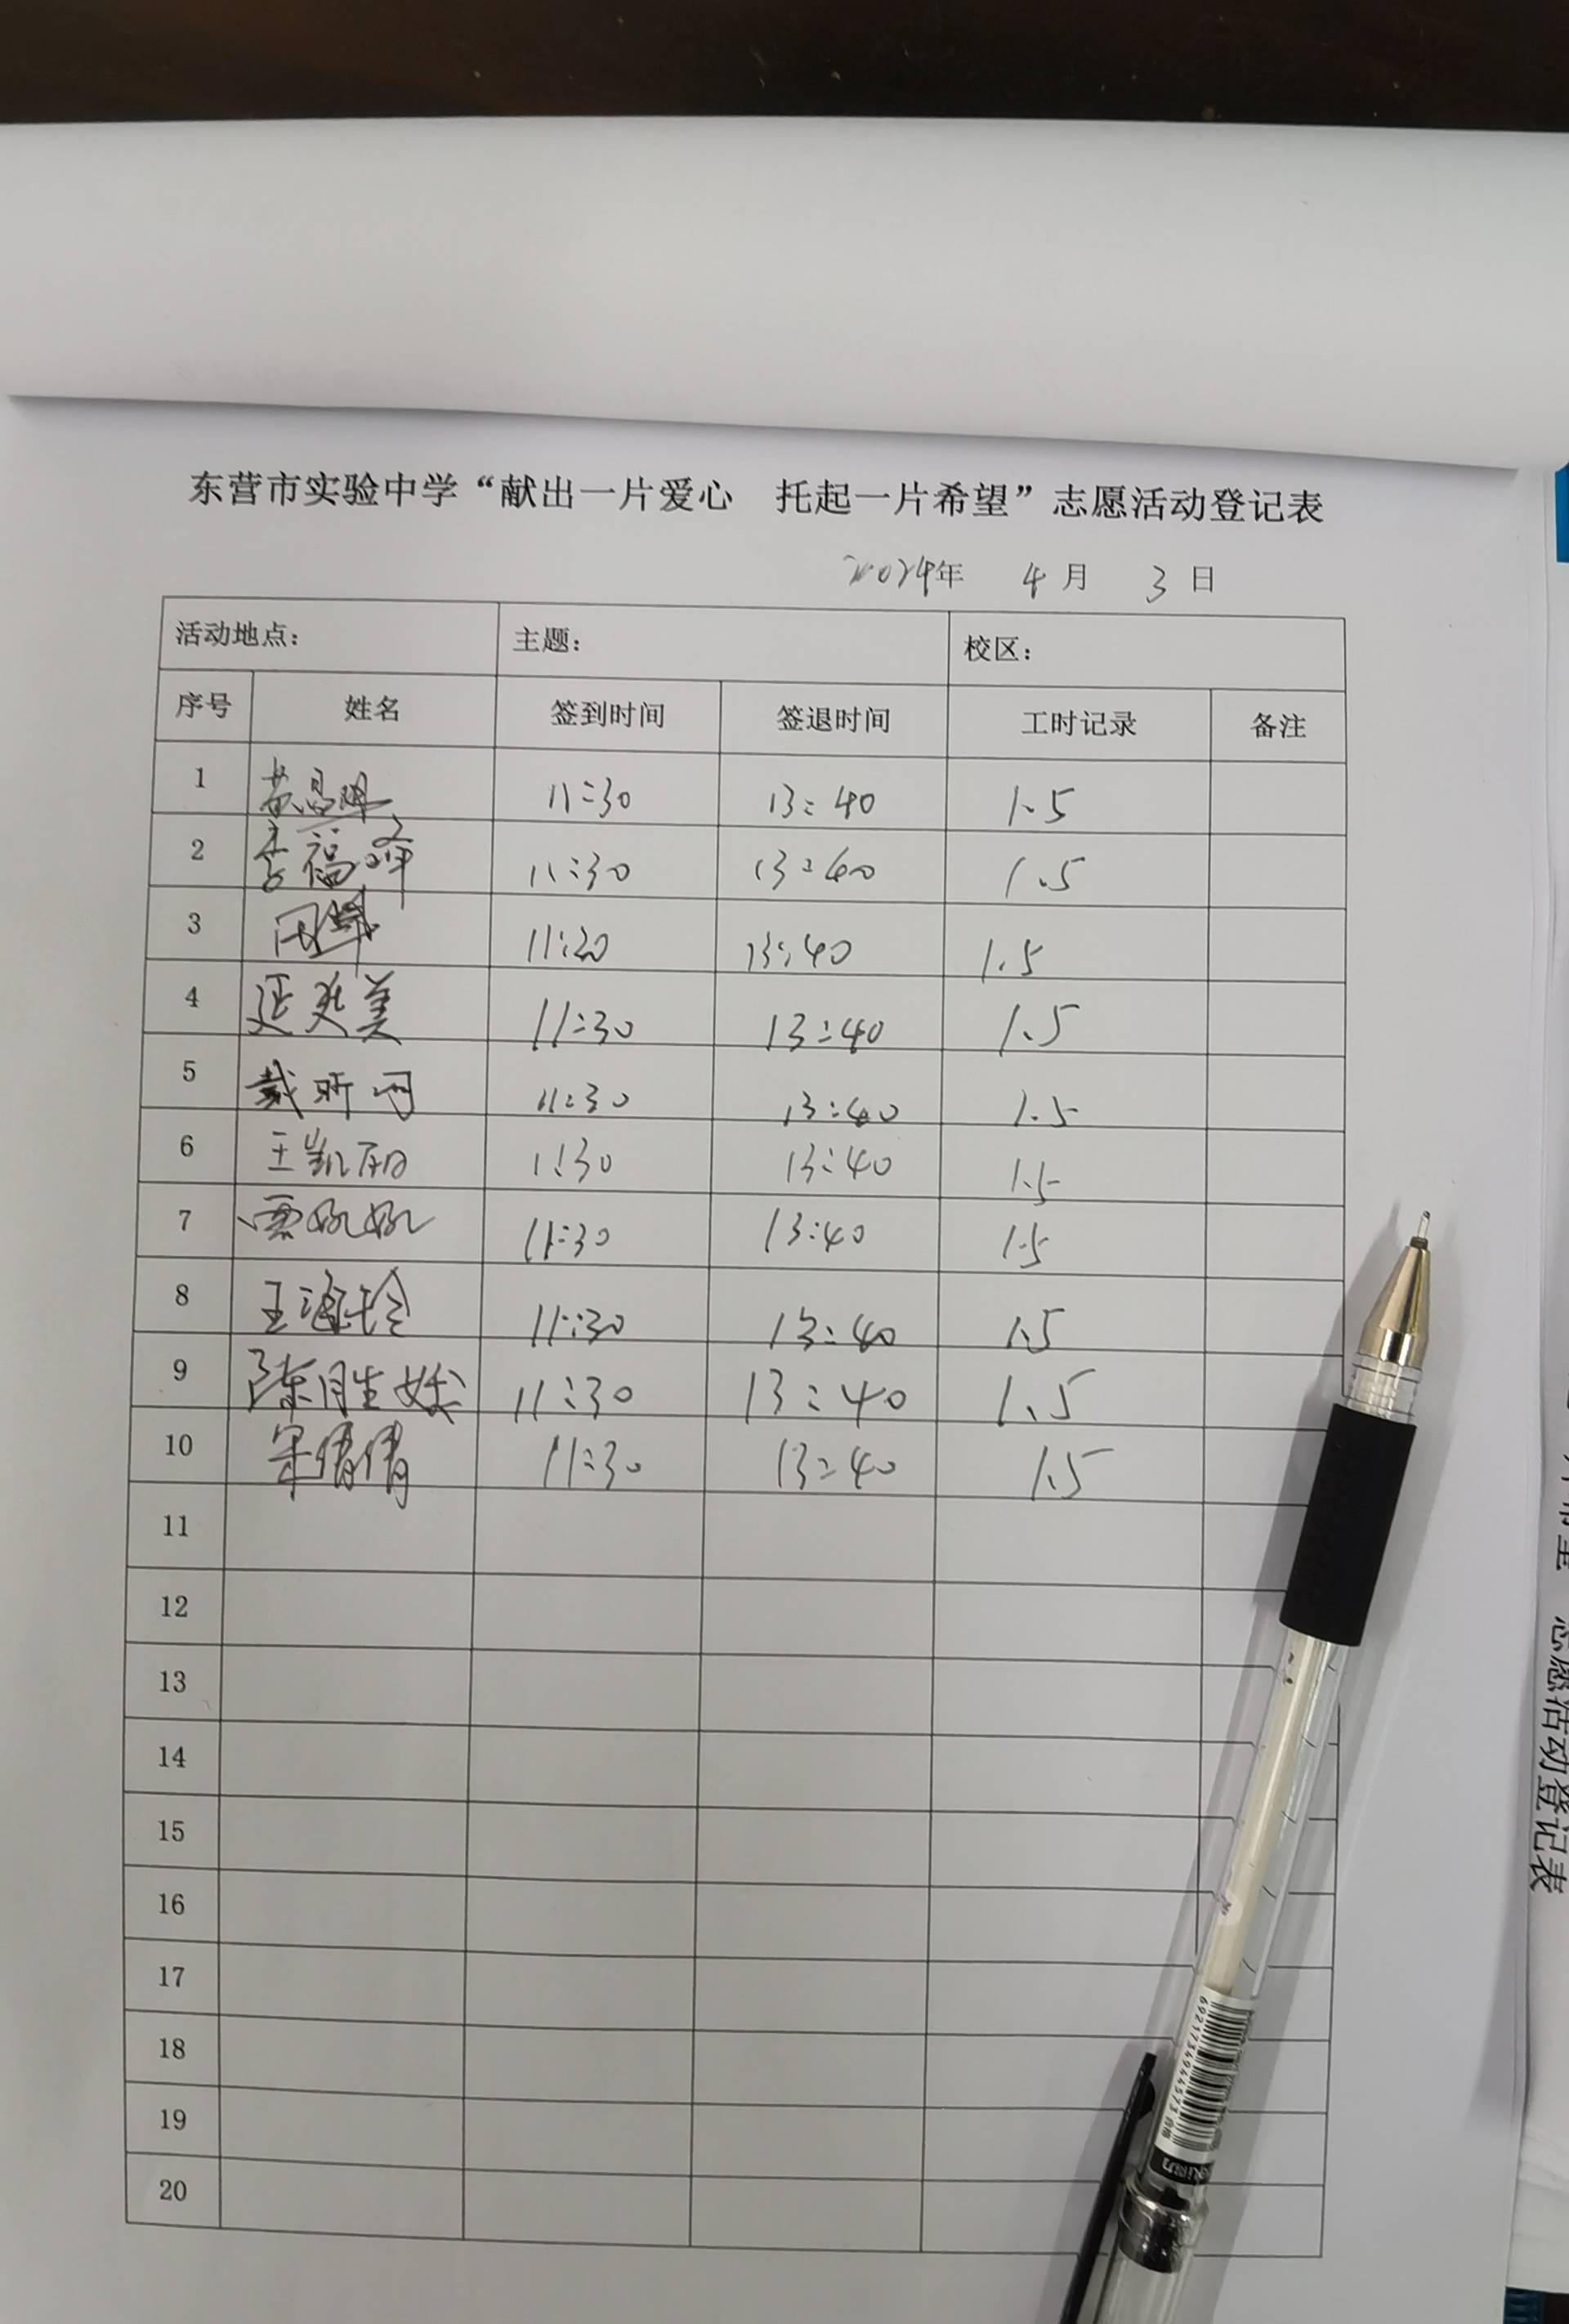 东营市实验中学“献出一片爱心 托起一片希望”志愿活动登记表
2024年 4月 3日
活动地点： 主题： 校区：
序号 姓名 签到时间 签退时间 工时记录 备注
1 11:30 13:40 1.5
2 李福祥 11:30 13:40 1.5
3 11:30 13:40 1.5
4 延美 11:30 13:40 1.5
5 戴昕 11:30 13:40 1.5
6 王凯 11:30 13:40 1.5
7 11:30 13:40 1.5
8 王玲 11:30 13:40 1.5
9 陈胜 11:30 13:40 1.5
10 宋倩倩 11:30 13:40 1.5
11
12
13
14
15
16
17
18
19
20
志愿活动登记表
6921734944573